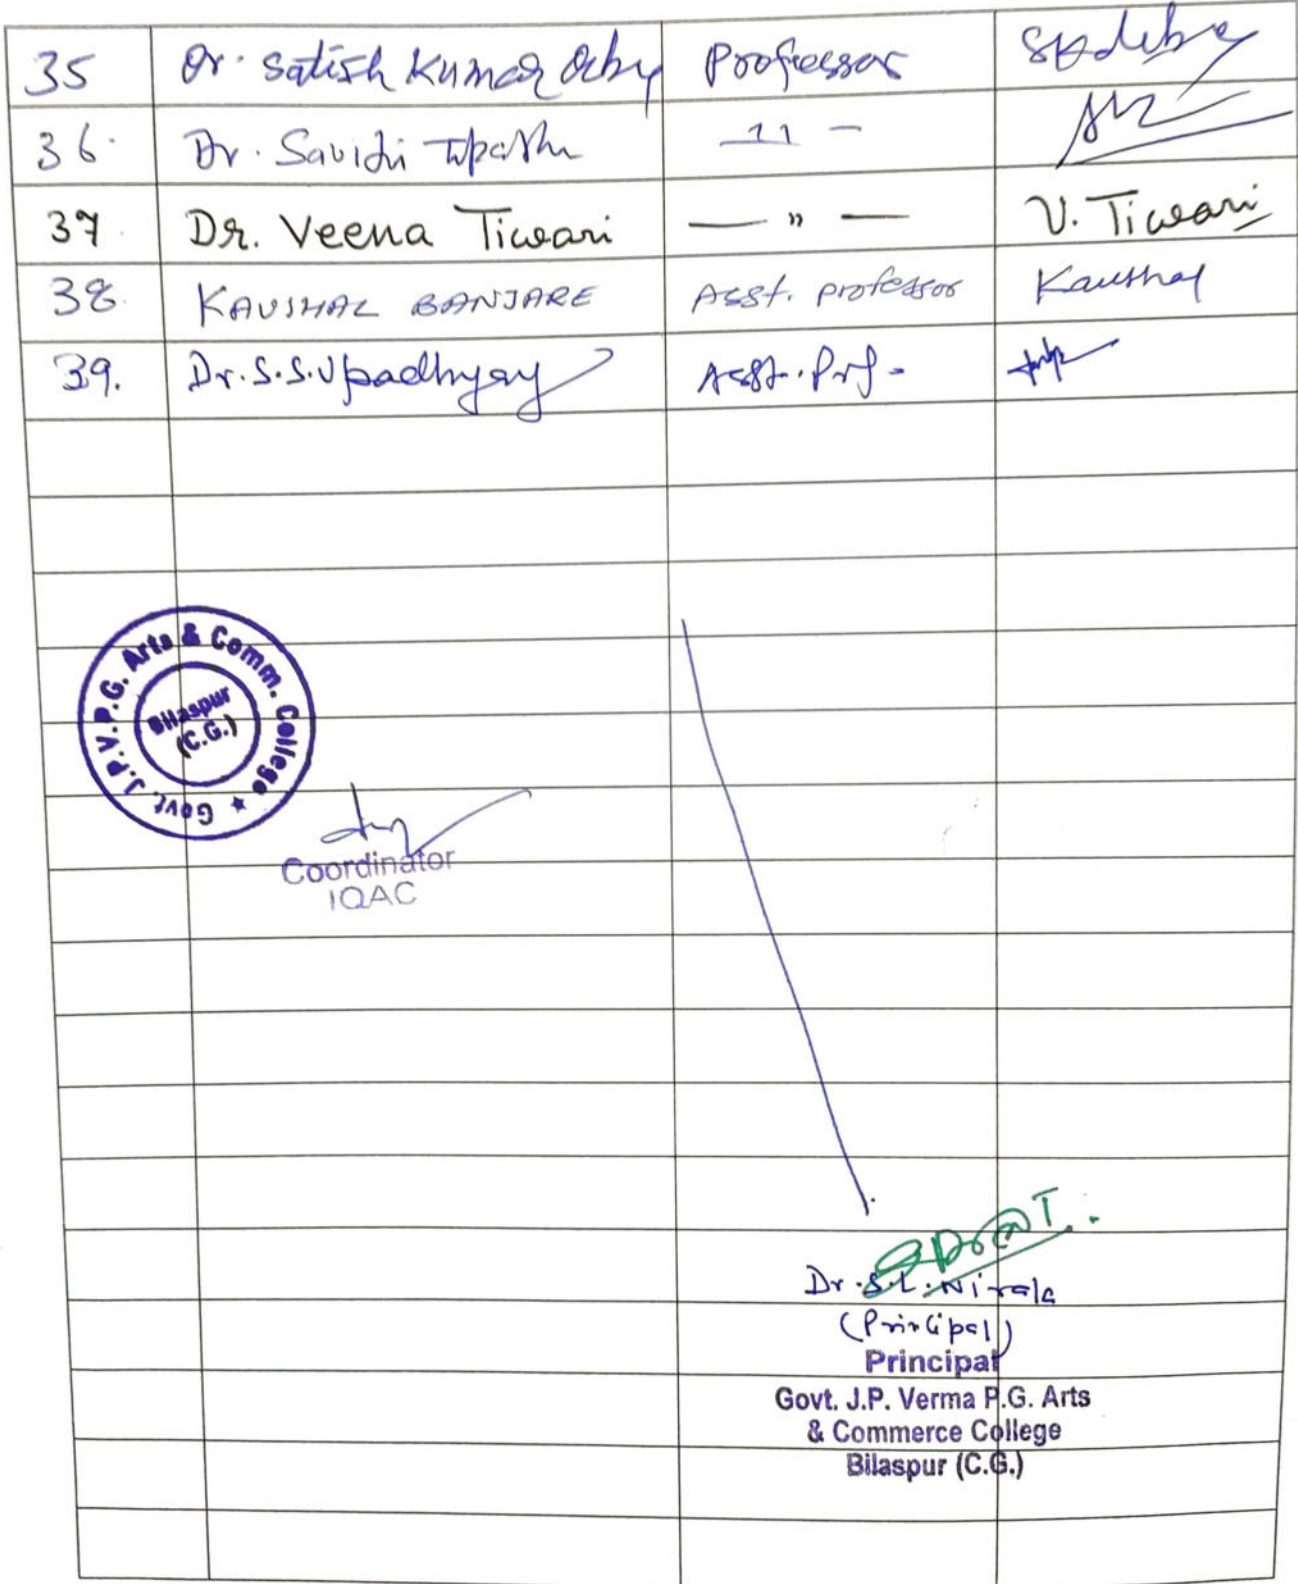 35 Dr. Satish Kumar Professor
36. Dr. Savitri Tripathi — 11 —
37. Dr. Veena Tiwari — " — V. Tiwari
38. KAUSHAL BANJARE Asst. professor Kaushal
39. Dr. S.S. Upadhyay Asst. Prof.
Govt. J.P.V.P.G. Arts & Comm. College ★
Bilaspur
(C.G.)
Coordinator
IQAC
Dr. S.L. Nirala
(Principal)
Principal
Govt. J.P. Verma P.G. Arts
& Commerce College
Bilaspur (C.G.)